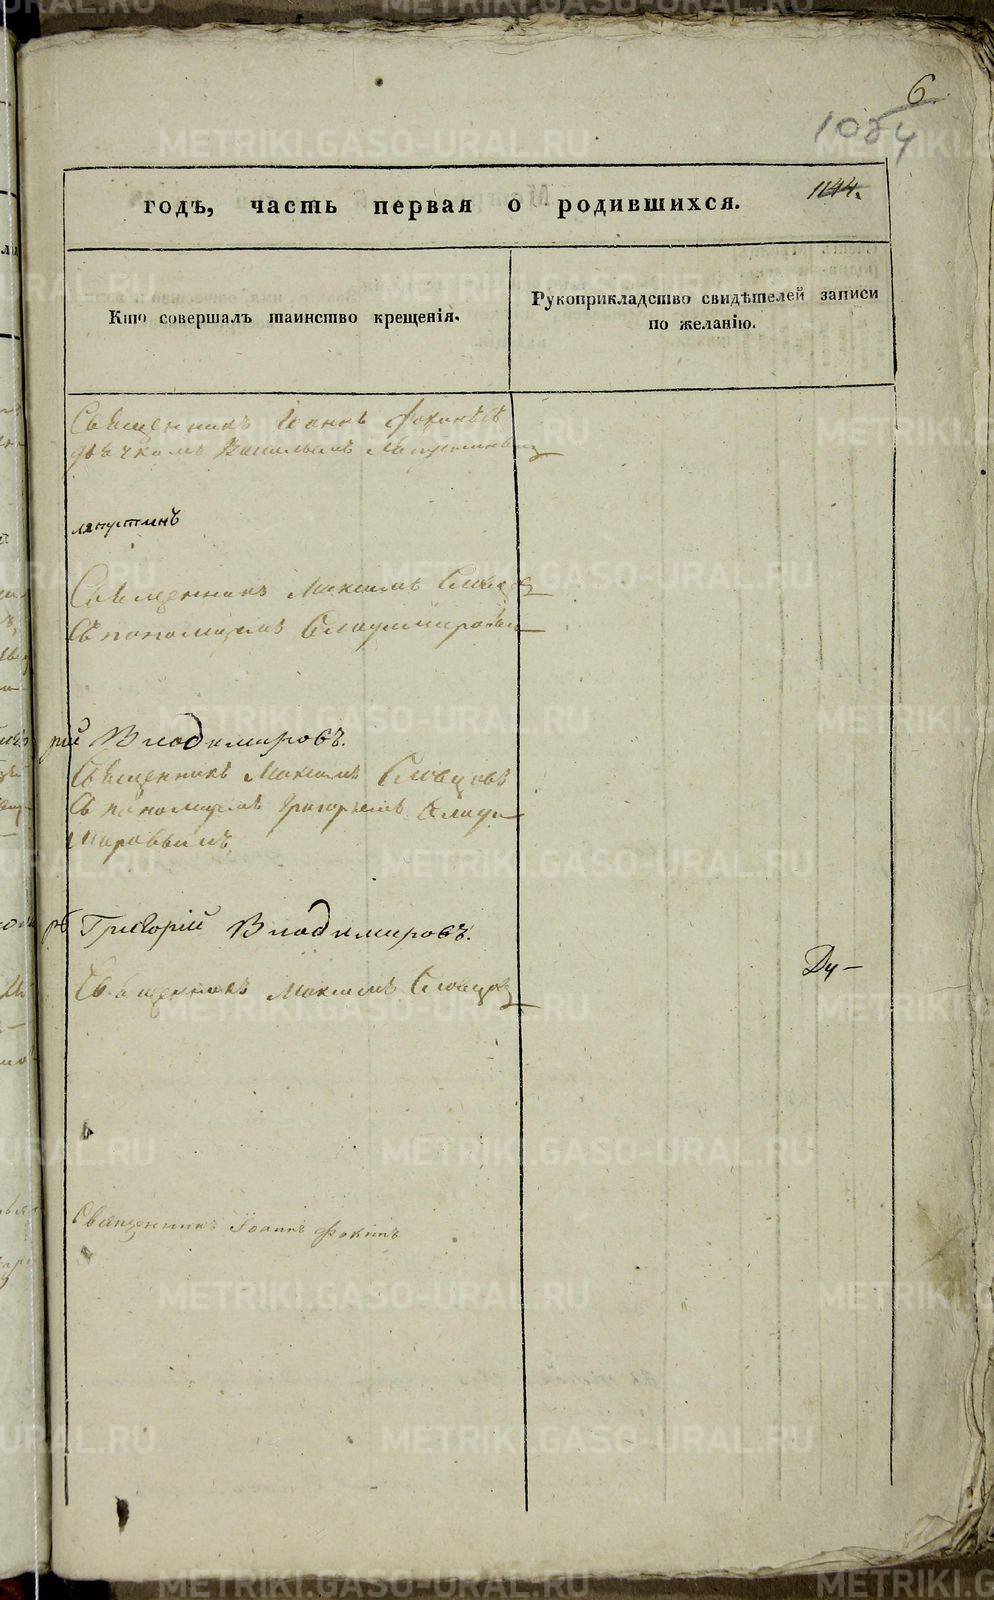 6
1054
1144.
годъ, часть первая о родившихся.
Кто совершалъ таинство крещенія.
Рукоприкладство свидѣтелей записи
по желанію.
Священникъ Іоаннъ
дьячкомъ Васильемъ Лапустинымъ
лапустинъ
Священникъ Максимъ Словцов
Съ пономаремъ
рій Владимировъ.
Священникъ Максимъ Словцовъ
Съ пономаремъ Григорьемъ Влади
мировымъ
Григорій Владимировъ.
Ду—
Священникъ Максимъ Словцовъ
Священникъ Іоаннъ Фокинъ
METRIKI.GASO-URAL.RU